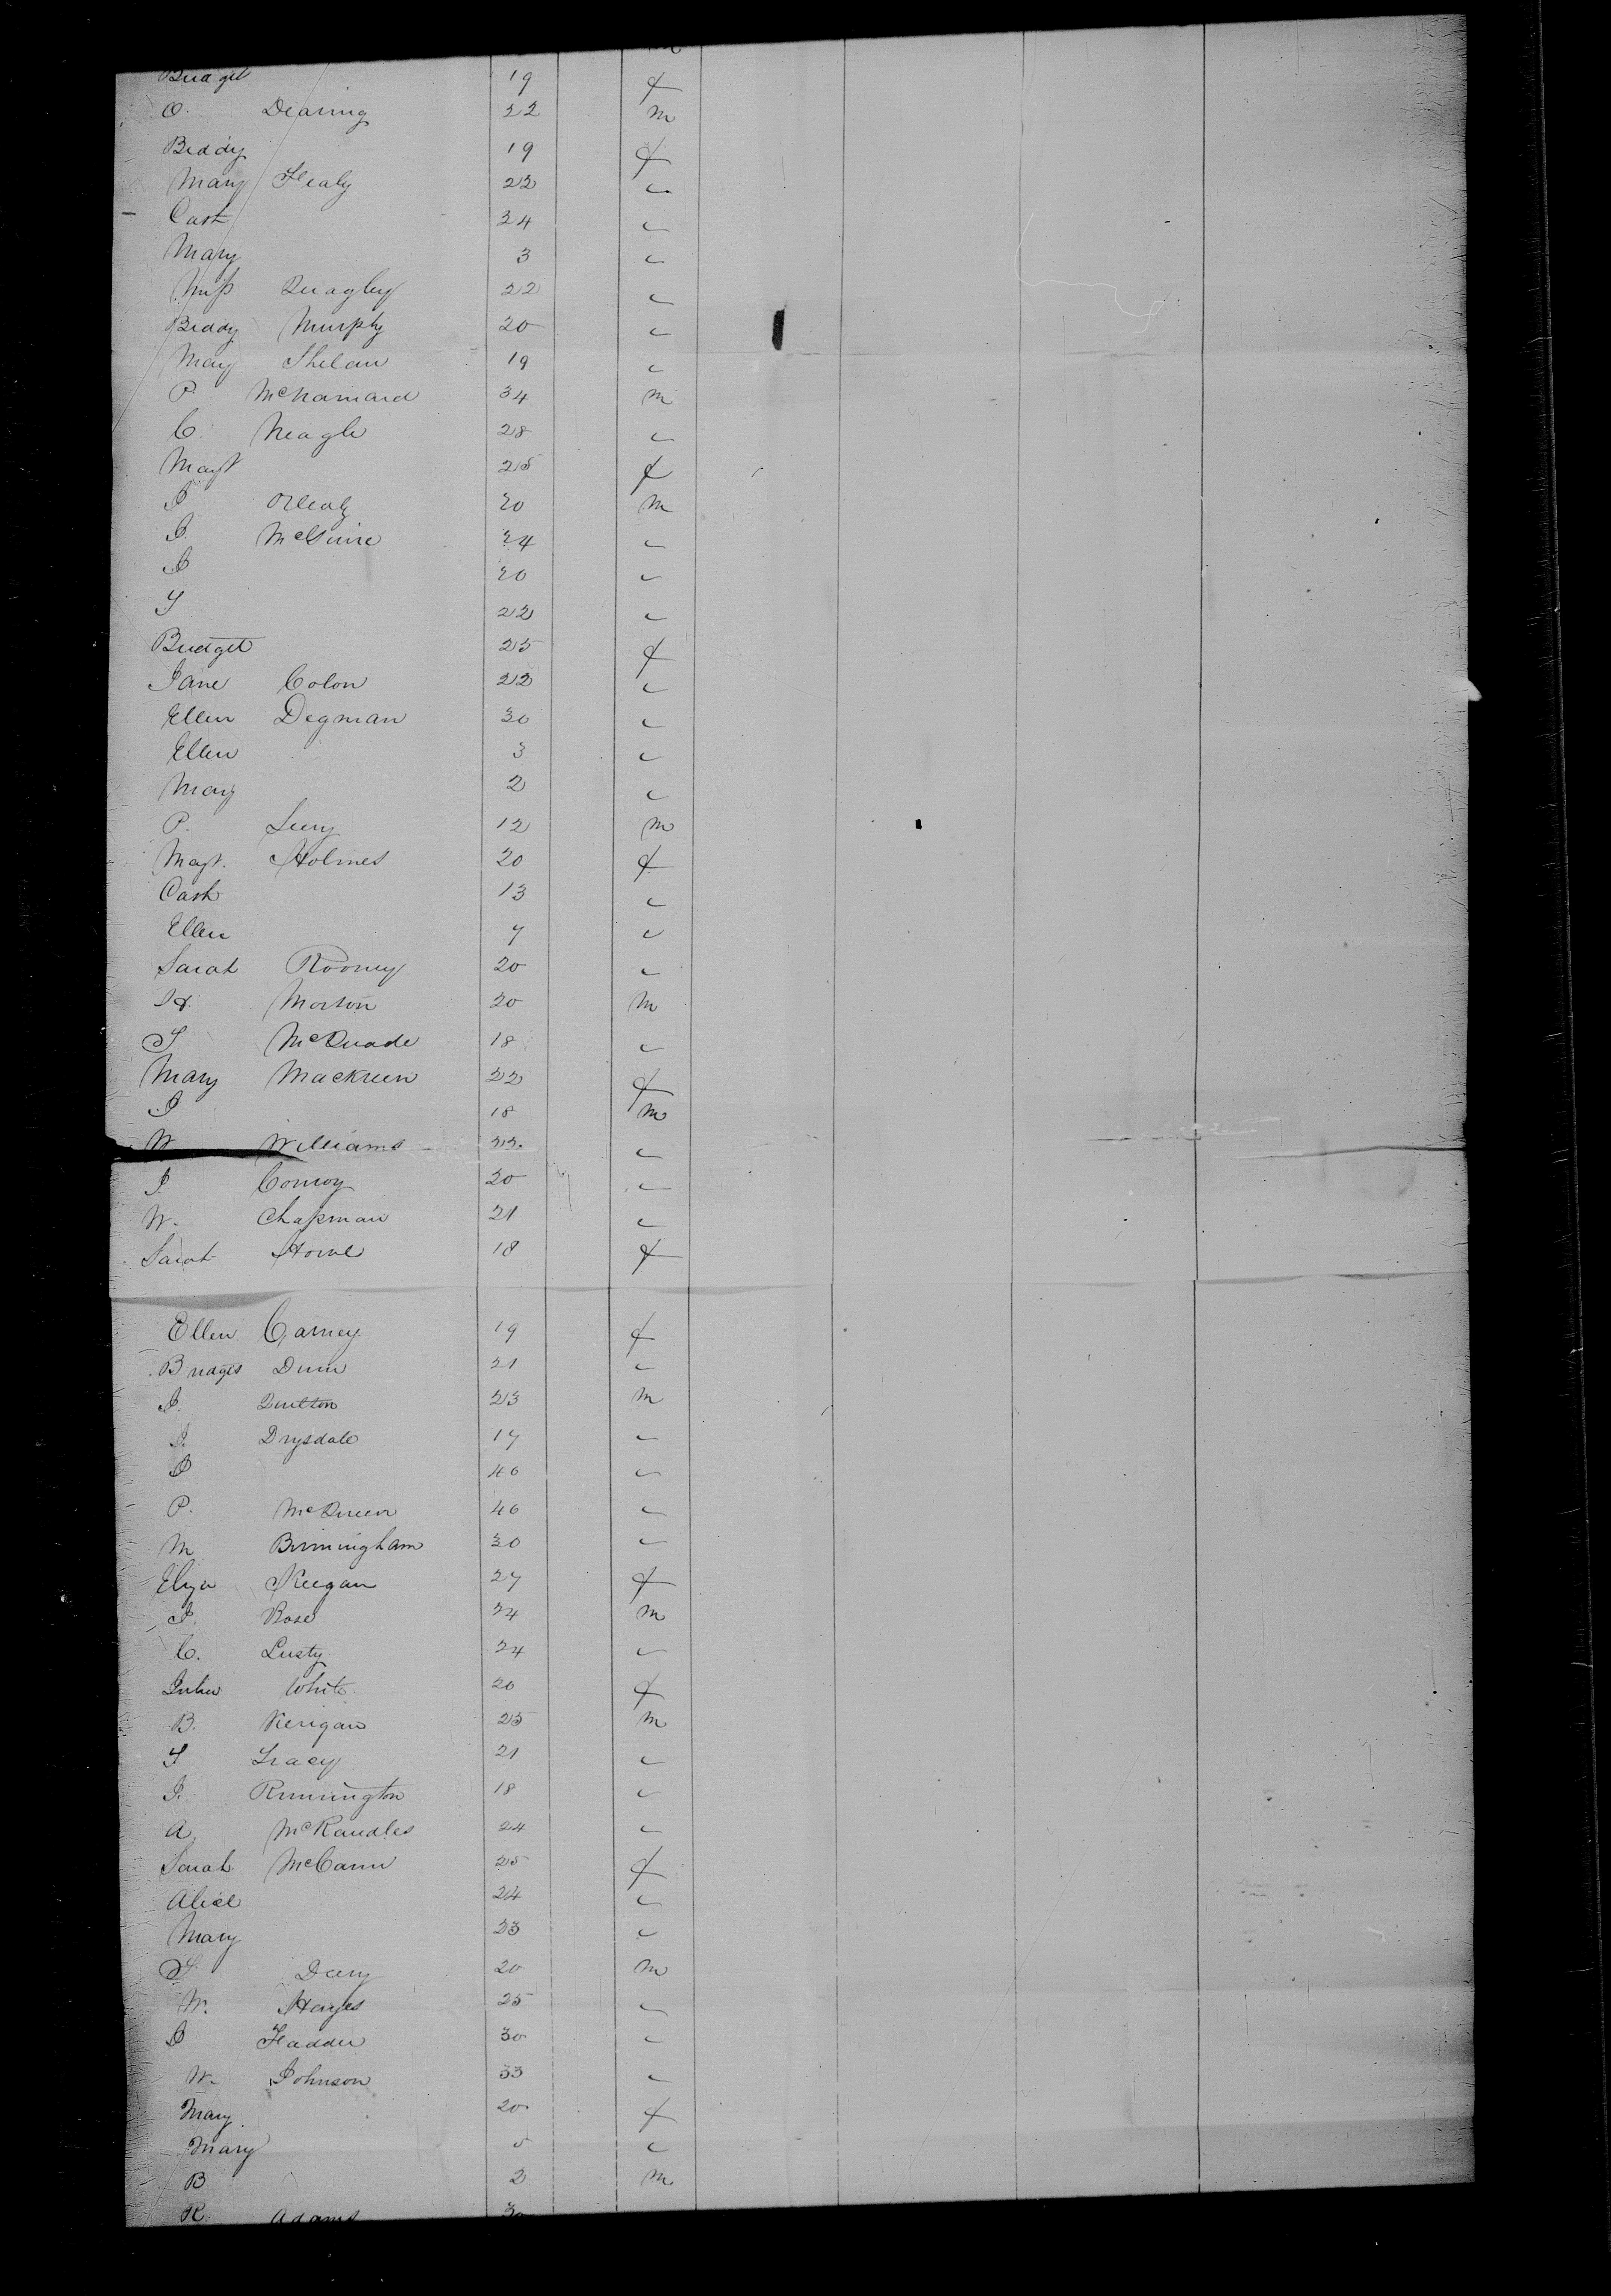 Bridget 19 f
O. Dearing 22 m
Biddy 19 f
Mary Healy 22 "
Cath 24 "
Mary 3 "
Miss Quagley 22 "
Biddy Murphy 20 "
Mary Shelan 19 "
P. McNamard 34 m
C. Neagle 28 "
Magt 25 f
J 20 m
J. McGuire 24 "
J 20 "
T 22 "
Bridget 25 f
Jane Colon 22 "
Ellen Degman 30 "
Ellen 3 "
Mary 2 "
P. 12 m
Magt. Holmes 20 f
Cath 13 "
Ellen 7 "
Sarah Rooney 20 "
H. Morton 20 m
T McQuade 18 "
Mary Mackreen 22 f
J 18 m
W Williams 22 "
J. Conroy 20 "
W. Chapman 21 "
Sarah Howe 18 f
Ellen Carney 19 f
Bridget Dunn 21 "
J. Quilton 23 m
J. Drysdale 17 "
J 40 "
P. McQueen 40 "
M Birmingham 30 "
Eliza Keegan 27 f
J. Rose 24 m
C. Lusty 24 "
Julia White 20 f
B. Kerigan 25 m
T Tracy 21 "
J. Rimmington 18 "
A McRandles 24 "
Sarah McCann 25 f
Alice 24 "
Mary 23 "
T Deery 20 m
W. Hayes 25 "
J Hadden 30 "
W. Johnson 33 "
Mary 20 f
Mary 5 "
B 2 m
R. Adams 30